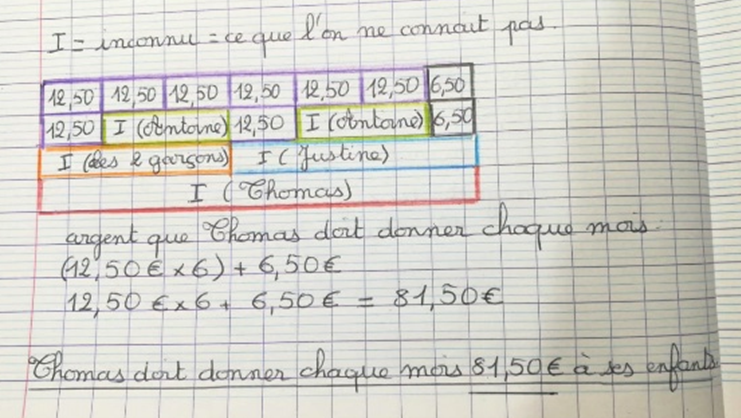 I = inconnu = ce que l'on ne connait pas.
12,50 12,50 12,50 12,50 12,50 12,50 6,50
12,50 I (Antoine) 12,50 I (Antoine) 6,50
I (des 2 garçons) I (Justine)
I (Thomas)
argent que Thomas doit donner chaque mois.
(12,50 € x 6) + 6,50 €
12,50 € x 6 + 6,50 € = 81,50 €
Thomas doit donner chaque mois 81,50 € à ses enfants